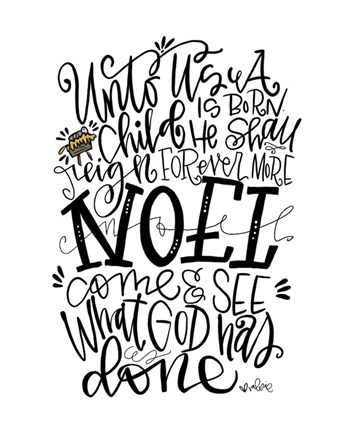 Unto Us A
IS BORN.
Child He Shall
reign FOREVER MORE
NOEL
noel
come & SEE
What GOD has
done